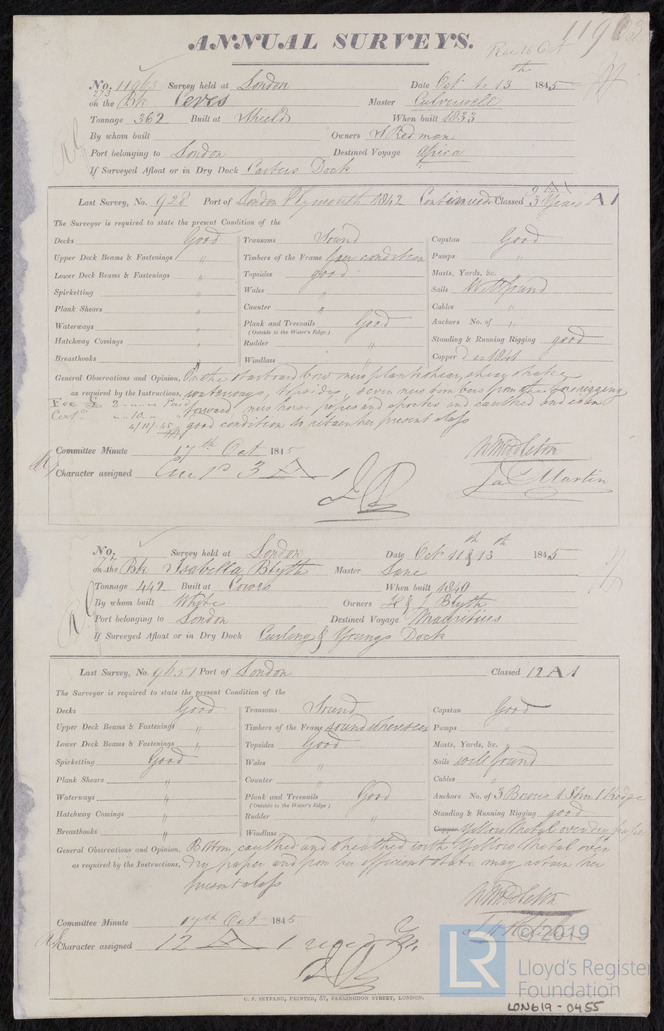 ANNUAL SURVEYS.
Rec 16 Oct
No. Survey held at London Date Oct to 13th 1845
on the Bk Ceres Master Culverwell
Tonnage 362 Built at Shields When built 1833
By whom built Owners Redman
Port belonging to London Destined Voyage Africa
If Surveyed Afloat or in Dry Dock Dock
Last Survey, No. 928 Port of London Plymouth 1842 Continued Classed 3 Years A1
The Surveyor is required to state the present Condition of the
Decks Good Transoms Sound Capstan Good
Upper Deck Beams & Fastenings " Timbers of the Frame condition Pumps "
Lower Deck Beams & Fastenings " Topsides good Masts, Yards, &c.
Spirketting " Wales " Sails Well found
Plank Shears " Counter " Cables "
Waterways " Plank and Treenails Good Anchors No. of "
(Outside to the Water's Edge.)
Hatchway Comings " Rudder " Standing & Running Rigging good
Breasthooks " Windlass " Copper
General Observations and Opinion, On the starboard bow new plankshear, sheer strake
as required by the Instructions, topsides, seven new timbers from the fore rigging
forward, new hawse pieces and and caulked and in
good condition to retain her present class
Committee Minute 17th Oct 1845
Character assigned 3 A 1
W Middleton
Jas Martin
No. Survey held at London Date Oct 11 & 13th 1845
on the Bk Isabella Blyth Master
Tonnage 442 Built at Cowes When built 1840
By whom built White Owners H & J Blyth
Port belonging to London Destined Voyage Mauritius
If Surveyed Afloat or in Dry Dock Curling & Youngs Dock
Last Survey, No. 9651 Port of London Classed 12 A 1
The Surveyor is required to state the present Condition of the
Decks Good Transoms Sound Capstan Good
Upper Deck Beams & Fastenings " Timbers of the Frame sound where seen Pumps "
Lower Deck Beams & Fastenings " Topsides Good Masts, Yards, &c.
Spirketting Good Wales " Sails well found
Plank Shears " Counter " Cables "
Waterways " Plank and Treenails Good Anchors No. of 3 Bowers 1 Stm 1 Kedge
(Outside to the Water's Edge.)
Hatchway Comings " Rudder " Standing & Running Rigging good
Breasthooks " Windlass " Copper Yellow Metal over dry paper
General Observations and Opinion, Bottom caulked and sheathed with Yellow Metal over
as required by the Instructions, dry paper and from her efficient state may retain her
present class
Committee Minute 17th Oct 1845
Character assigned 12 A 1
W Middleton
C. F. SEYFANG, PRINTER, 57, FARRINGDON STREET, LONDON.
LR © 2019
Lloyd's Register
Foundation
LON619-0455